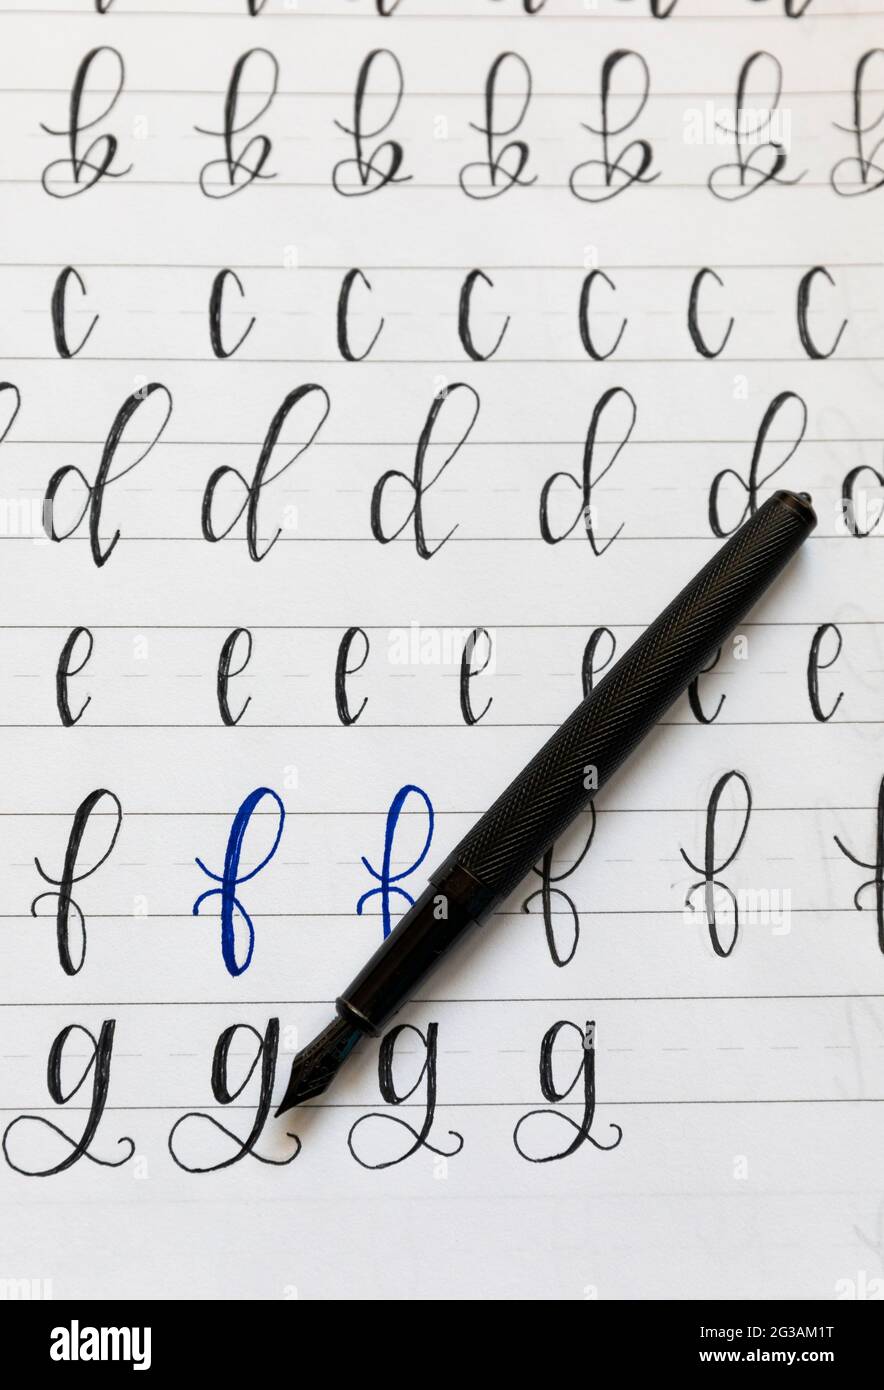 b b b b b b b
c c c c c c c
d d d d d d
e e e e e e e
f f f f f f
g g g g
alamy
Image ID: 2G3AM1T
www.alamy.com